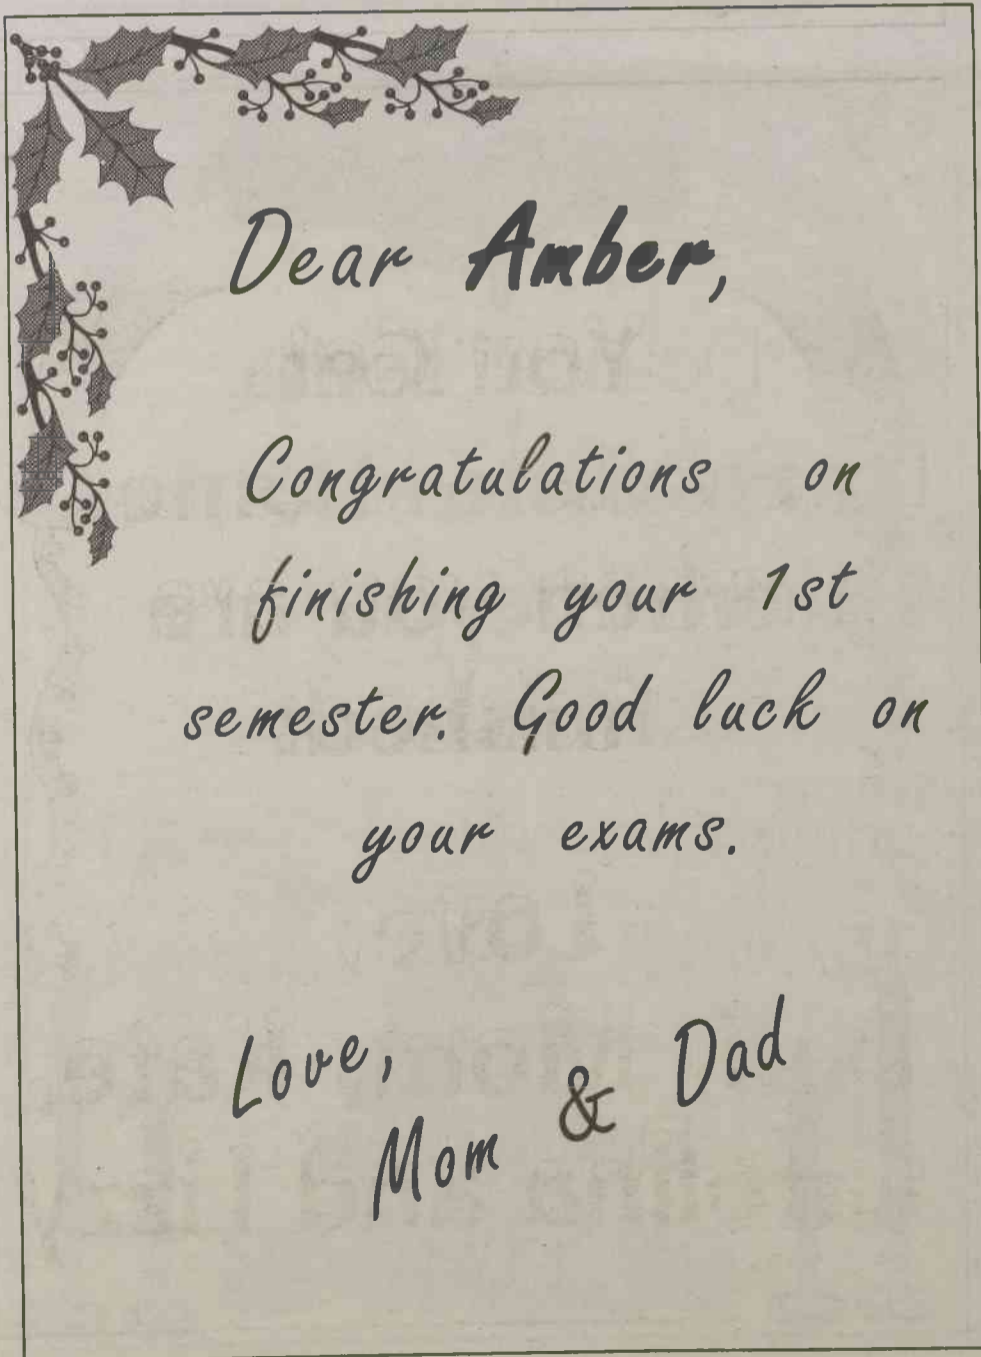 Dear Amber,
Congratulations on
finishing your 1st
semester. Good luck on
your exams.
Love,
Mom & Dad